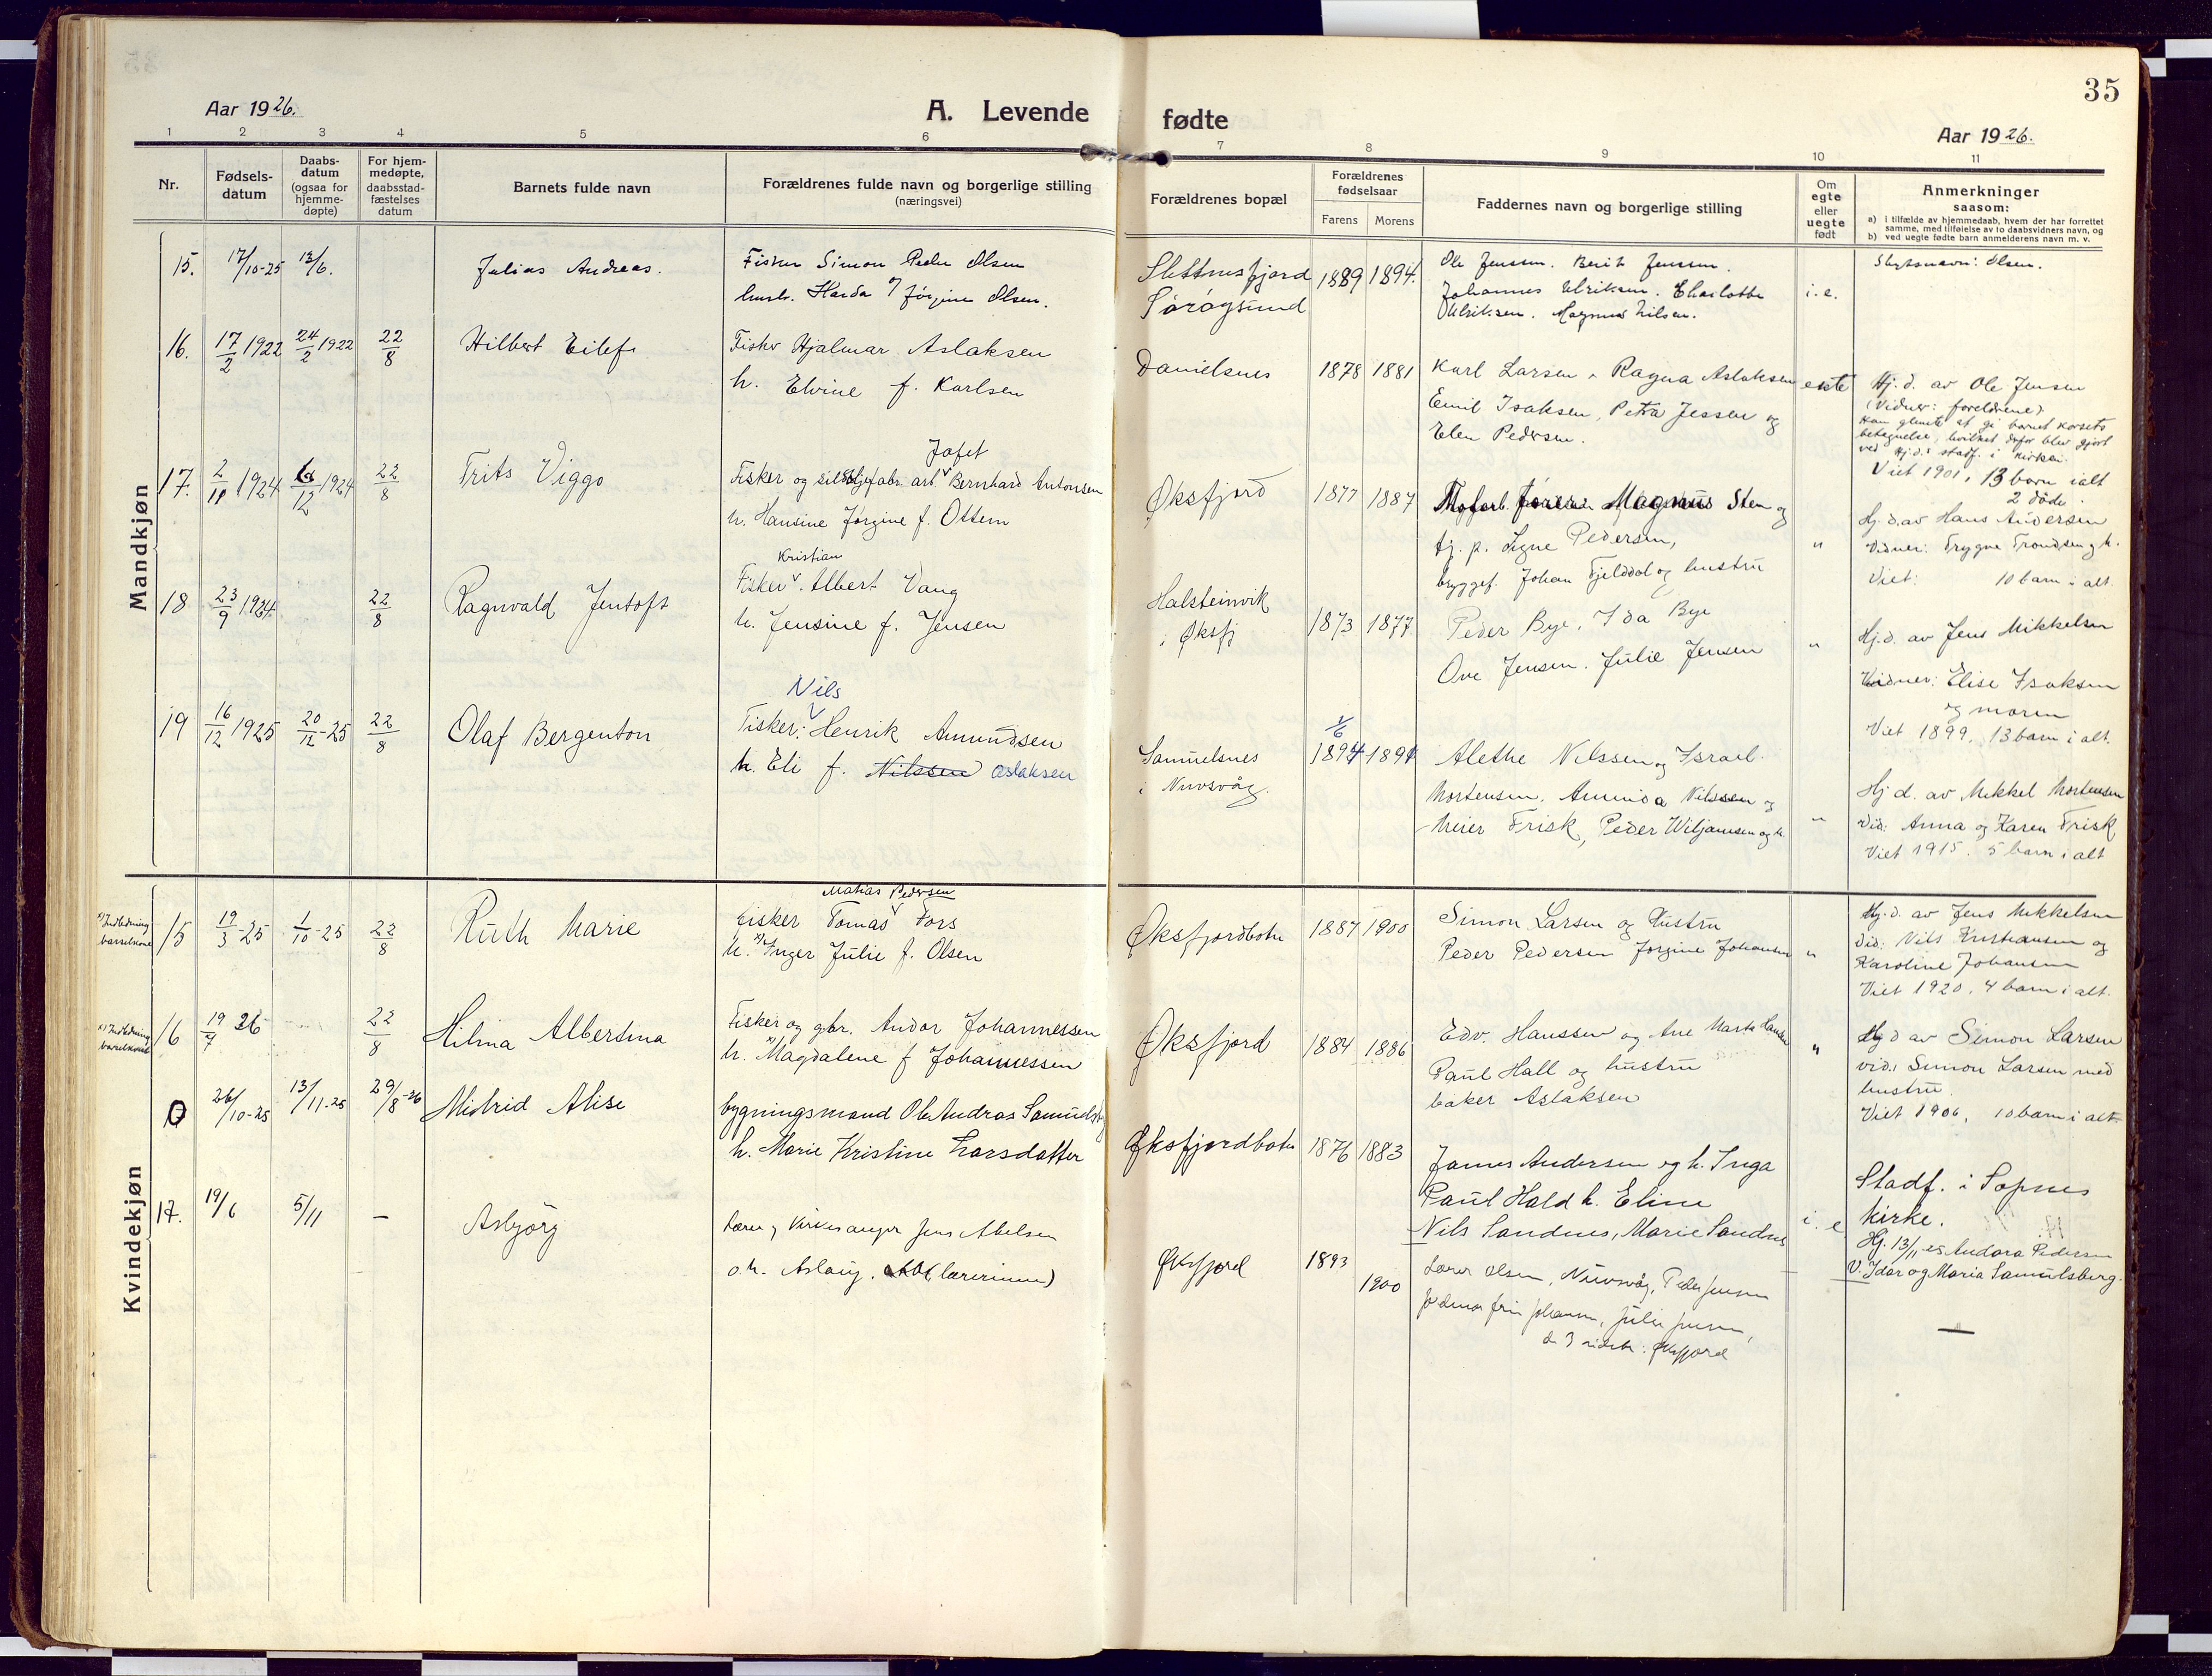 35
Aar 1926.
A. Levende fødte
Aar 1926.
1 2 3 4 5 6 7 8 9 10 11
Nr.
Fødsels-datum
Daabs-datum (ogsaa for hjemme-døpte)
For hjem-medøpte, daabsstad-fæstelses datum
Barnets fulde navn
Forældrenes fulde navn og borgerlige stilling (næringsvei)
Forældrenes bopæl
Forældrenes fødselsaar
Farens Morens
Faddernes navn og borgerlige stilling
Om egte eller uegte født
Anmerkninger saasom:
a) i tilfælde av hjemmedaab, hvem der har forrettet samme, med tilføielse av to daabsvidners navn, og
b) ved uegte fødte barn anmelderens navn m. v.
Mandkjøn
15. 17/10-25 13/6. Julius Andreas.
Fisker Simon Peder Olsen
hustr. Harda Jörgine Olsen.
Slettnesfjord
Sørøysund
1889 1894.
Ole Jenssen. Berit Jenssen.
Johannes Ulriksen. Charlotte
Ulriksen. Magnus Nilsen.
i.e.
Slegtsnavn: Olsen.
16. 17/2 1922 24/2 1922 22/8 Hilbert Eilef
Fisker Hjalmar Aslaksen
h. Elvine f. Karlsen
Danielsnes
1878 1881
Karl Larsen, Ragna Aslaksen
Emil Isaksen, Petra Jessen og
Elen Pedersen.
ekte
Hj. d. av Ole Jensen
(Vidner: foreldrene)
Han glemte at gi barnet korsets
betegnelse, hvilket derfor blev gjort
ved hj.d.s stadf. i kirken.
Viet 1901, 13 barn ialt
2 døde.
17. 2/10 1924 6/12 1924 22/8 Frits Viggo
Jafet
Fisker og sildoljefabr. arb. Bernhard Antonsen
h. Hansine Jørgine f. Ottem
Øksfjord
1877 1887
Magnus Sten og
tj. p. Signe Pedersen,
bryggef. Johan Fjelddal og hustru
"
Hj. d. av Hans Andersen
Vidner: Trygve Trondsen og h.
Viet: 10 barn i alt.
18 23/9 1924. 22/8 Ragnvald Jentoft
Kristian
Fisker Albert Vang
h. Jensine f. Jensen
Halsteinvik
i Øksfj
1873 1877
Peder Bye, Ida Bye
Ove Jensen. Julie Jensen
"
Hj. d. av Jens Mikkelsen
Vidner: Elise Isaksen
og moren
Viet 1899. 13 barn i alt.
19 16/12 1925 20/12-25 22/8 Olaf Bergenton
Nils
Fisker: Henrik Amundsen
h. Eli f. Nilssen Aslaksen
Samuelsnes
i Nuvsvåg.
1/6
1894 1894
Alethe Nilssen og Israel
Mortensen. Amunda Nilssen og
Meier Frisk, Peder Wiljamsen og h.
"
Hj d. av Mikkel Mortensen
Vid: Anna og Karen Frisk
Viet 1915. 5 barn i alt
Kvindekjøn
x) Indledning barselkone
15 19/3-25 1/10-25 22/8 Ruth Marie
Matias Pedersen
Fisker Tomas Fors
h. x) Inger Julie f. Olsen
Øksfjordbotn
1887 1900
Simon Larsen og hustru
Peder Pedersen Jørgine Johansen
"
Hj. d. av Jens Mikkelsen
Vid: Nils Kristiansen og
Karoline Johansen
Viet 1920. 4 barn i alt.
x) Indledning barselkone
16 19/7 26 22/8 Hilma Albertina
Fisker og gbr. Andor Johannessen
h. x) Magdalene f Johannessen
Øksfjord
1884 1886
Edv. Hanssen og Ane Marta Hansen
Paul Hall og hustru
baker Aslaksen
"
Hj d av Simon Larsen
vid. Simon Larsen med
hustru
Viet 1906, 10 barn i alt
0 26/10-25 13/11-25 29/8-26 Midrid Alise
bygningsmand Ole Andras Samuelsbg
h. Marie Kristine Larsdatter
Øksfjordbotn
1876 1883
James Andersen og h. Inga
Paul Hald h. Eline
Nils Sandnes, Marie Sandnes
i. e
Stadf. i Sopnes
kirke.
Hj. 13/11-25 Andora Pedersen
V. Idar og Maria Samuelsberg.
17. 19/6 5/11 — Asbjörg
Lærer og Kirkesanger Jens Abelsen
o. h. Aslaug. (lærerinne)
Øksfjord
1893
1900
Lærer Olsen, Nuvsvåg, Peder Jensen
Johansen, Julie Jensen,
de 3 sidste: Øksfjord
—